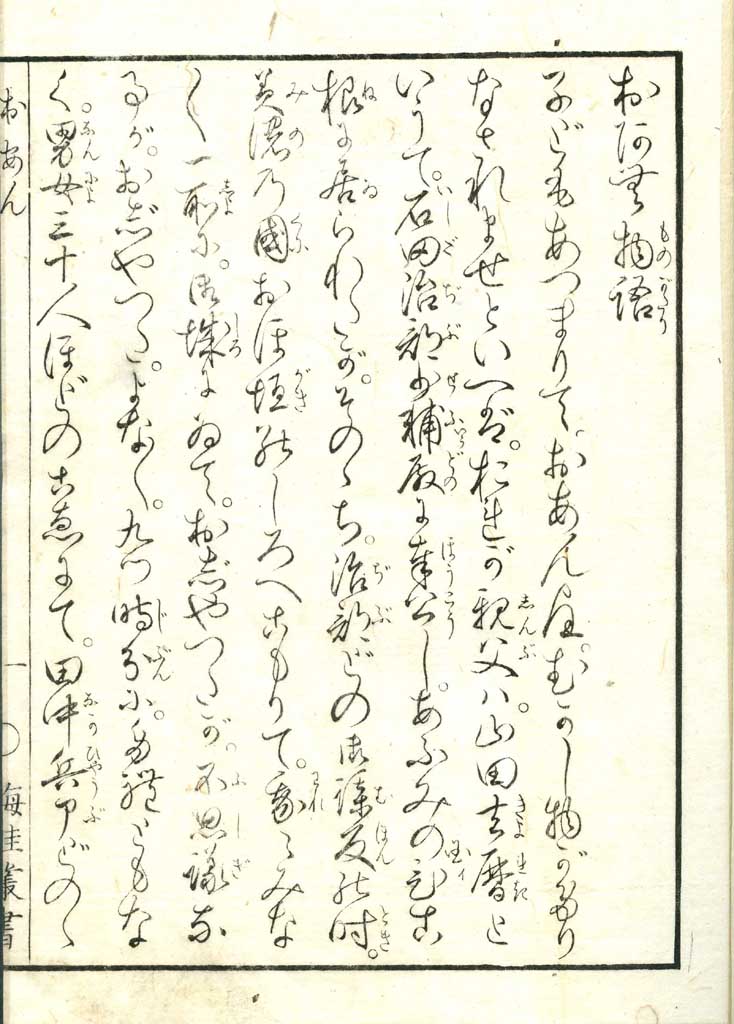 おあん物語
子どもあつまりて。おあん様。むかし物がたり
なされませといへば。おれが親父ハ。山田去暦と
いうて。石田治部少輔殿に奉公し。あふみのひこ
根に居られたが。そのゝち。治部どの御謀反の時。
美濃の國おほ垣のしろへこもりて。我々みな
〱一所に。御城にゐて。おじやつたが。不思議な
事が。おじやつた。よな〱。九ツ時分に。誰ともな
く。男女三十人ほどのこゑにて。田中兵部どのゝ
おあん 一 海圭叢書